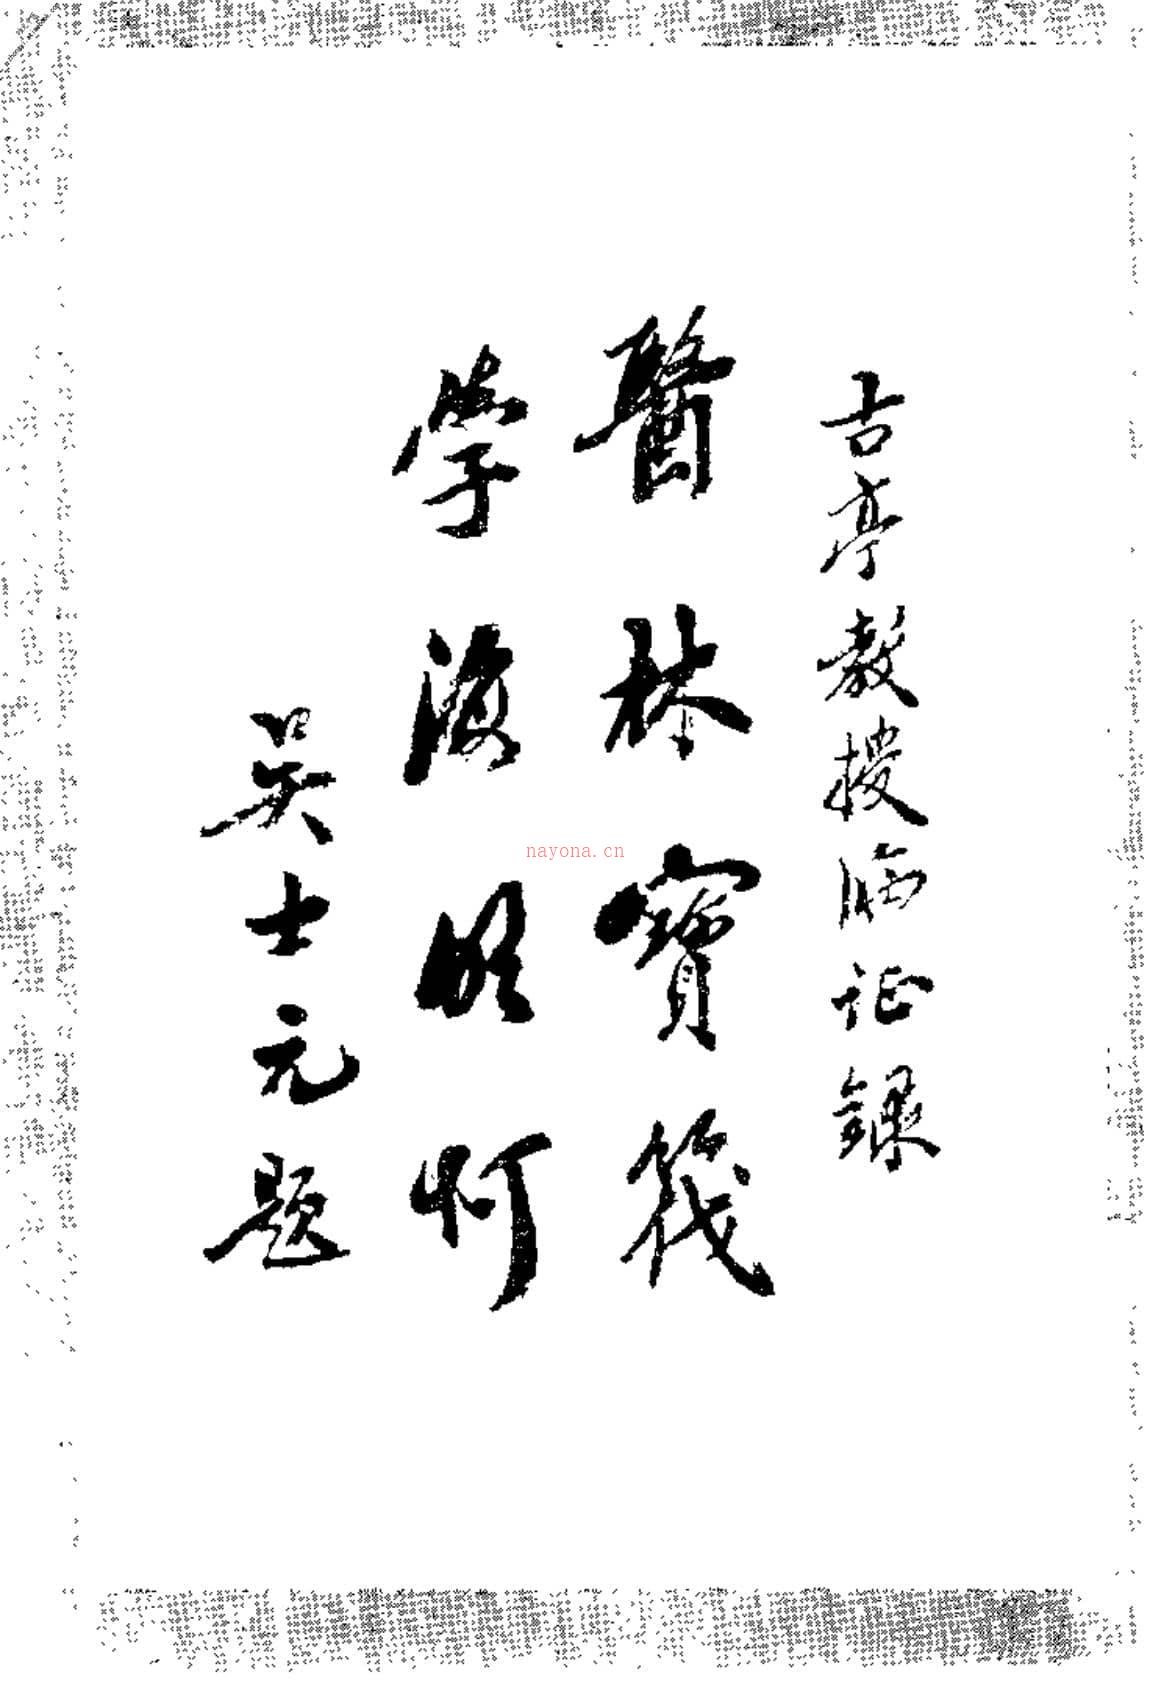 古亭教授临证录
醫林寶筏
学海明灯
吴士元题
nayona.cn